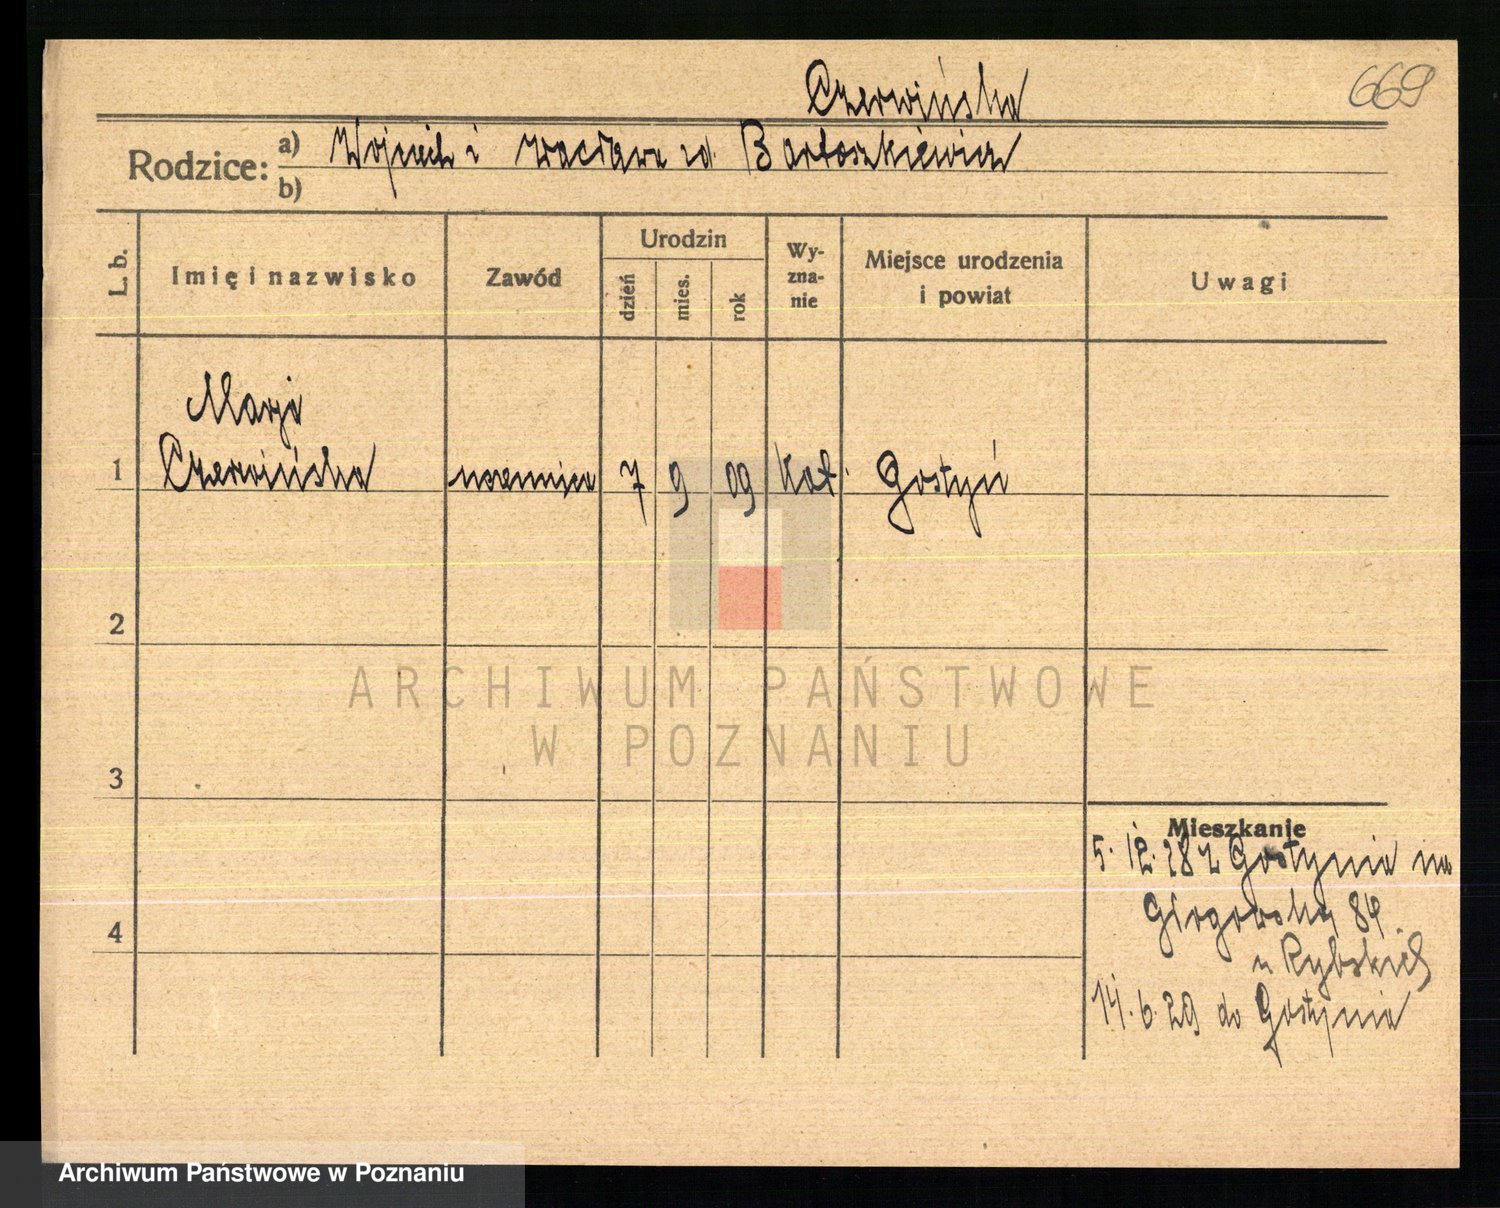 Czerwińska
669
Rodzice: a) Wojciech i Wacława zd. Bartoszkiewicz
b)
L. b.
Imię i nazwisko
Zawód
Urodzin
dzień
mies.
rok
Wy-
zna-
nie
Miejsce urodzenia
i powiat
Uwagi
Marja
1 Czerwińska uczennica 7 9 09 Kat. Gostyń
2
3
4
Mieszkanie
5. 12. 28 z Gostynia na
Głogowską 84
u Rybskich
14. 6. 29 do Gostynia
ARCHIWUM PAŃSTWOWE
W POZNANIU
Archiwum Państwowe w Poznaniu